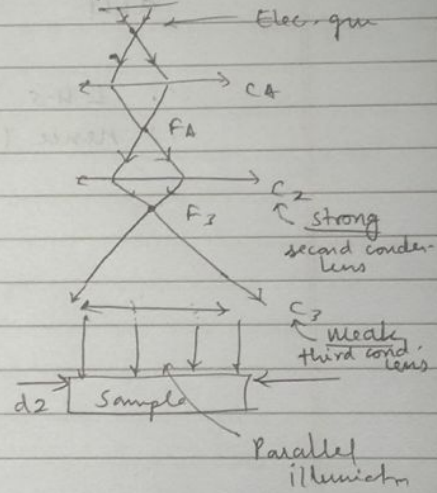 Elec. gun
CA
FA
C2
F3
strong
second conden-
lens
C3
Weak
third cond.
lens
d2
Sample
Parallel
illuminatn